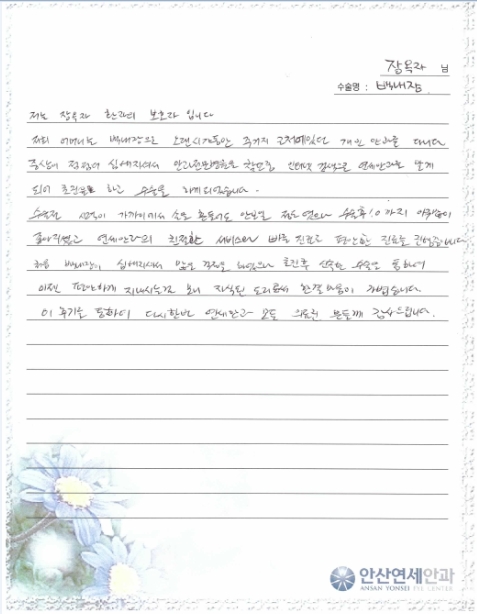 장옥자 님
수술명 : 백내장
저는 장옥자 환자의 보호자 입니다
저희 어머니는 백내장으로 오랜시간동안 개인 안과를 다니다
증상이 점점더 심해지셔서 안과전문병원을 찾던중 인터넷 검색으로 연세안과를 알게
되어 호진을 하고 수술을 하게되었습니다.
수술전 시력이 가까이에서 손을 흔들어도 안보일 정도였으나 수술후 1.0 까지 시력이
좋아지셨고 연세안과의 친절한 서비스와 빠른 진료로 편안한 진료를 받았습니다
처음 백내장이 심해지셔서 앞도 하였으나 수술을 통하여
이젠 편안하게 지내시는걸 보니 자식된 도리로서 한결 마음이 가볍습니다.
이 후기를 통하여 다시한번 연세안과 모든 의료진 분들께 감사드립니다.
안산연세안과
ANSAN YONSEI EYE CENTER